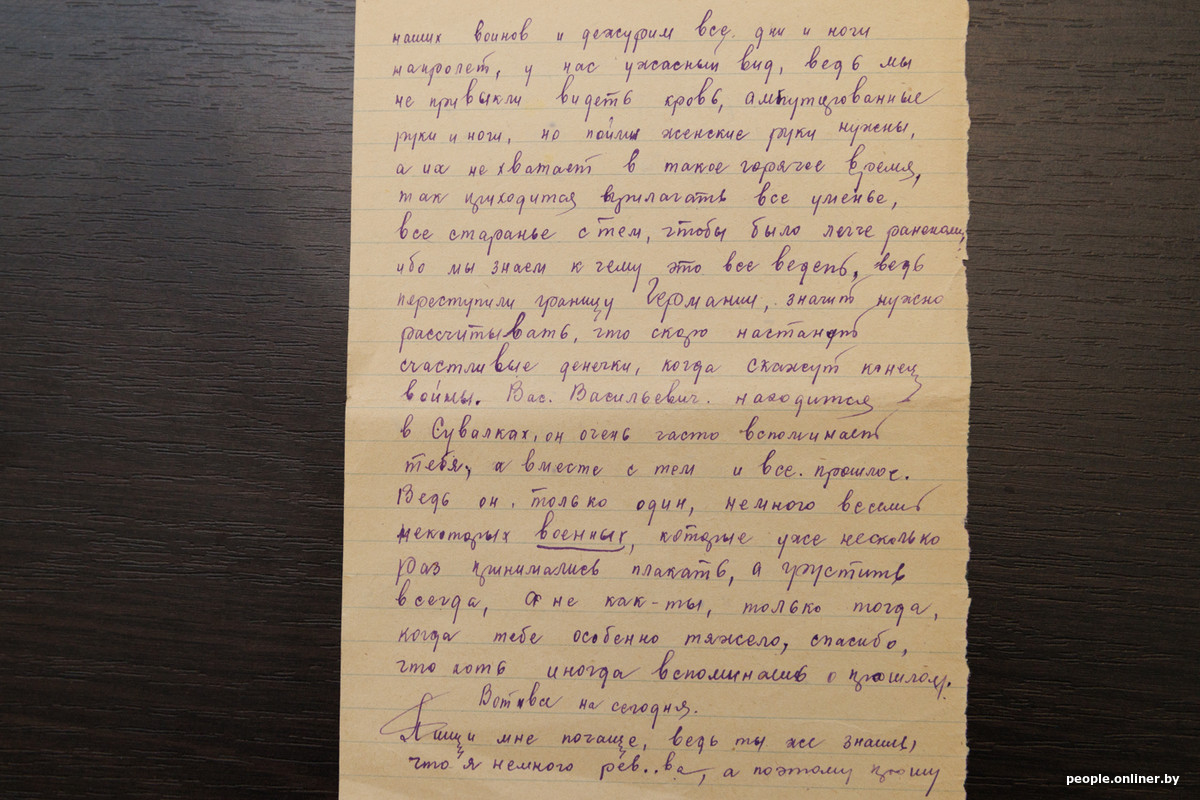 наших воинов и дежурим все. дни и ночи
напролет, у нас ужасный вид, ведь мы
не привыкли видеть кровь, ампутированные
руки и ноги, но пойми женские руки нужны,
а их не хватает в такое горячее время,
так приходится прилагать все уменье,
все старанье с тем, чтобы было легче раненому,
ибо мы знаем к чему это все ведень, ведь
переступили границу Германии, значит нужно
рассчитывать, что скоро настанут
счастливые денечки, когда скажут конец
войны. Вас. Васильевич. находится
в Сувалках, он очень часто вспоминает
тебя, а вместе с тем и все. прошлое.
Ведь он. только один, немного веселит
некоторых военных, которые уже несколько
раз принимались плакать, а грустить
всегда, а не как-ты, только тогда,
когда тебе особенно тяжело, спасибо,
что хоть иногда вспоминаешь о прошлом.
Вот и все на сегодня.
Пиши мне почаще, ведь ты же знаешь,
что я немного рев..ва, а поэтому прошу
people.onliner.by